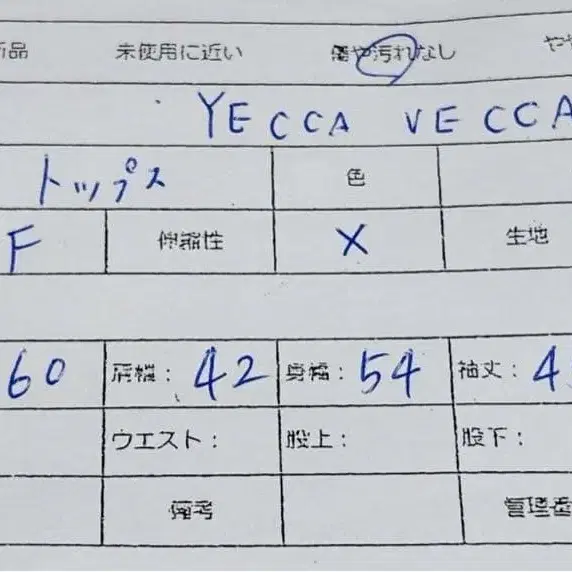 新品 未使用に近い 傷や汚れなし やや
YECCA VECCA
トップス 色
F 伸縮性 X 生地
60 肩幅: 42 身幅: 54 袖丈: 4
ウエスト: 股上: 股下:
備考 管理番